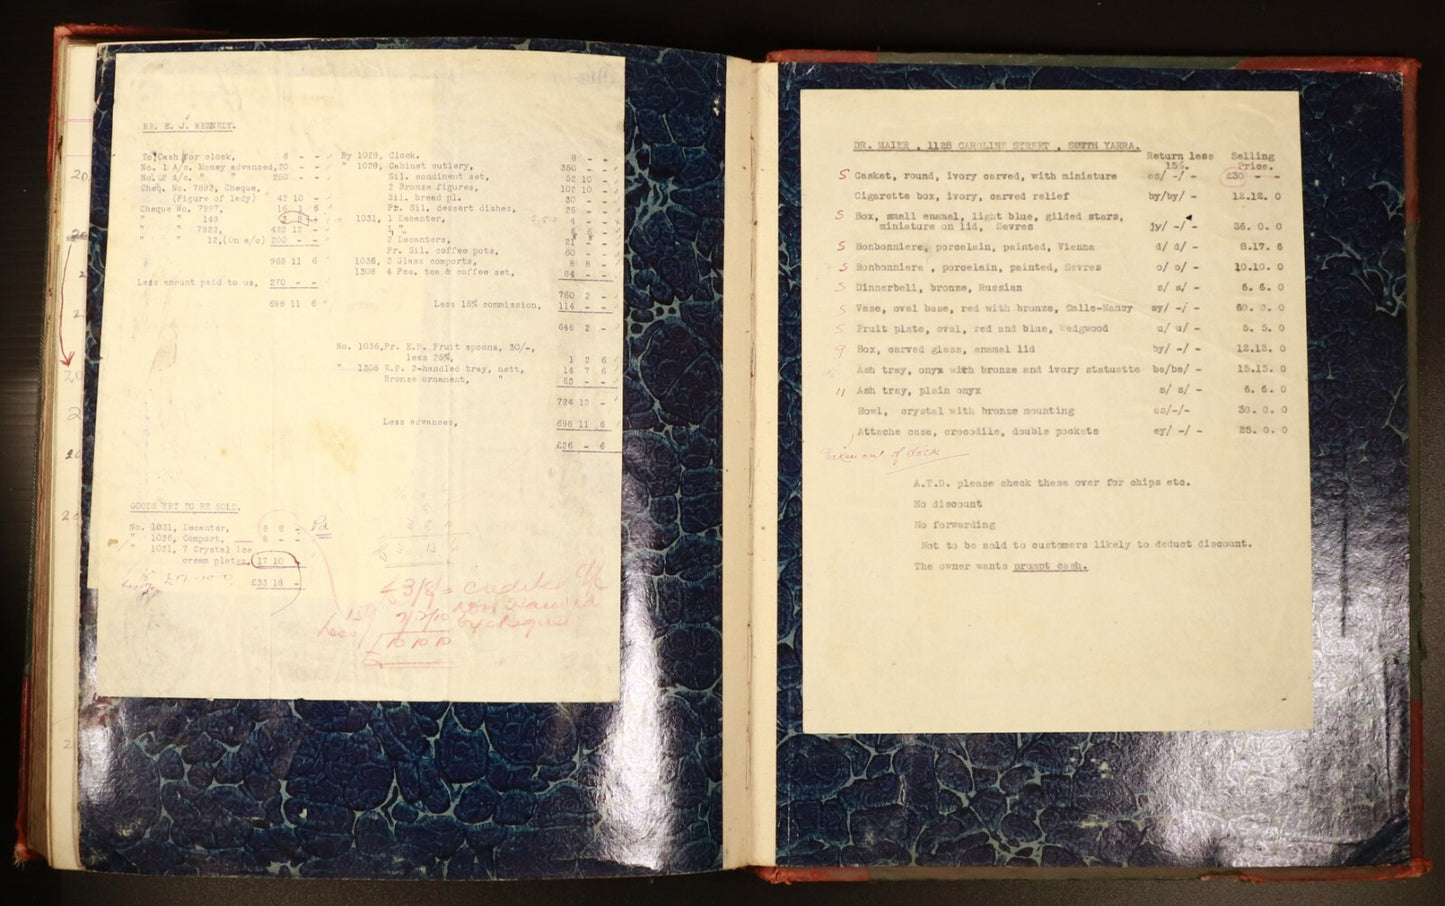 MR. E. J. KENNEDY.
To Cash for clock, 8 - -
No. 1 A/c. Money advanced, 20 - -
No. 2 A/c. " " 250 - -
Cheq. No. 7893, Cheque,
(Figure of lady) 42 10 -
Cheque No. 7897, 16 1 6
" " 149
" " 7823, 432 12 -
" " 12,(On a/c) 200 - -
968 11 6
Less amount paid to us, 270 - -
698 11 6
By 1028, Clock. 8 - -
" 1029, Cabinet cutlery, 350 - -
Sil. condiment set, 52 10 -
2 Bronze figures, 102 10 -
Sil. bread pl. 30 - -
Pr. Sil. dessert dishes, 25 - -
1031, 1 Decanter, 4 - -
1 "
2 Decanters, 21
Pr. Sil. coffee pots, 60 - -
1036, 2 Glass comports, 8 8 -
1308 4 Pce. tea & coffee set, 84 - -
760 2 -
Less 15% commission, 114 - -
646 2 -
No. 1036, Pr. E.P. Fruit spoons, 30/-,
less 25%, 1 2 6
" 1308 E.P. 2-handled tray, nett, 14 7 6
Bronze ornament, " 63 - -
724 12 -
Less advances, 698 11 6
£26 - 6
GOODS YET TO BE SOLD.
No. 1031, Decanter, 8 8 - Pd
" 1036, Comport, 8 - -
" 1031, 7 Crystal Ice
cream plates, 17 10 -
£33 18 -
£3/8/= credited
Less 15%
by cheque
10 10 10
DR. MAIER , 1128 CAROLINE STREET , SOUTH YARRA.
Return less 15%. Selling Price.
S Casket, round, ivory carved, with miniature es/ -/ - £30 - -
Cigarette box, ivory, carved relief by/by/ - 12.12. 0
S Box, small enamel, light blue, gilded stars,
miniature on lid, Sevres jy/ -/ - 36. 0. 0
S Bonbonniere, porcelain, painted, Vienna d/ d/ - 8.17. 6
S Bonbonniere , porcelain, painted, Sevres o/ o/ - 10.10. 0
S Dinnerbell, bronze, Russian s/ s/ - 6. 6. 0
S Vase, oval base, red with bronze, Galle-Nancy sy/ -/ - 60. 0. 0
S Fruit plate, oval, red and blue, Wedgwood u/ u/ - 5. 5. 0
9 Box, carved glass, enamel lid by/ -/ - 12.12. 0
Ash tray, onyx with bronze and ivory statuette be/be/ - 15.15. 0
11 Ash tray, plain onyx s/ s/ - 6. 6. 0
Bowl, crystal with bronze mounting es/-/- 30. 0. 0
Attache case, crocodile, double pockets ey/ -/ - 25. 0. 0
Taken out of stock
A.T.D. please check these over for chips etc.
No discount
No forwarding
Not to be sold to customers likely to deduct discount.
The owner wants prompt cash.